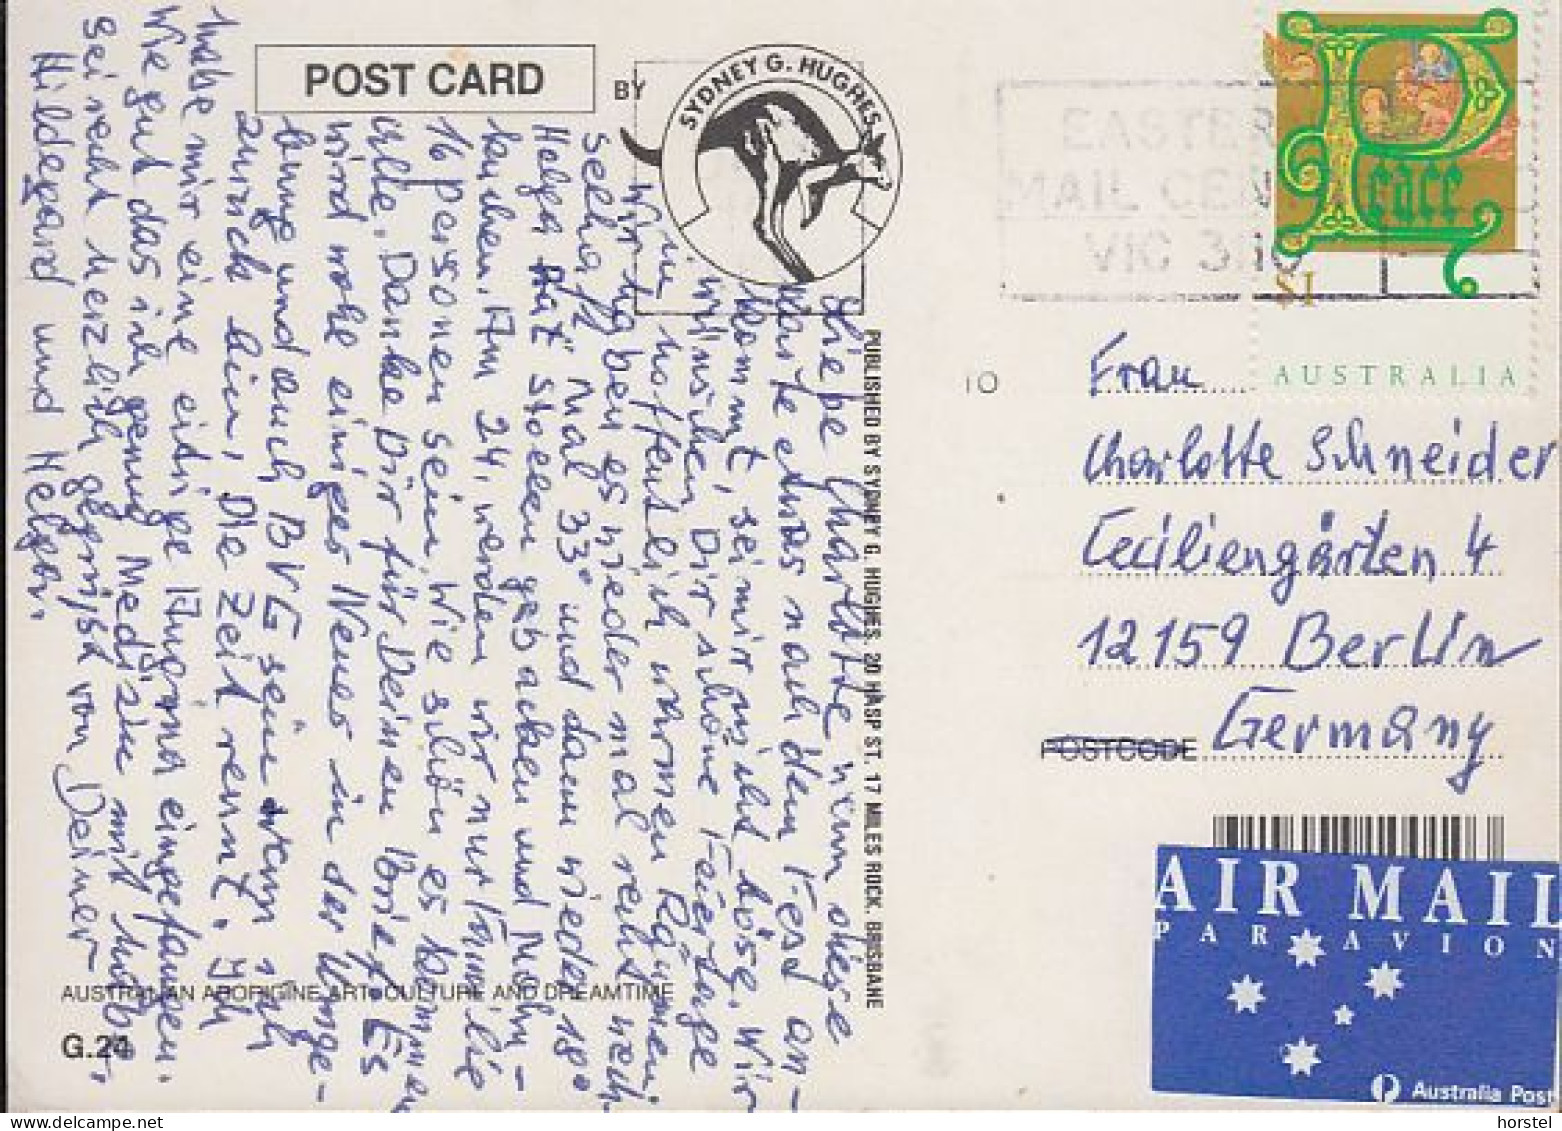 POST CARD
BY
SYDNEY G. HUGHES
EASTER
MAIL CEN
VIC 3110
Peace
$1
AUSTRALIA
TO
Frau
Charlotte Schneider
Ceciliengärten 4
12159 Berlin
POSTCODE Germany
AIR MAIL
PAR AVION
Australia Post
PUBLISHED BY SYDNEY G. HUGHES 20 HASP ST. 17 MILES ROCK. BRISBANE
Liebe Charlotte wenn diese
Karte etwas nach dem Fest an-
kommt, sei mir nicht böse. Wir
wünschen Dir schöne Feiertage
in hoffentlich warmen Räumen.
Wir haben es wieder mal recht wech-
selhaft. Mal 33° und dann wieder 18°
Helga hat Stollen gebacken und Mohn-
kuchen. Am 24. werden wir nur Familie
16 Personen sein. Wie schön es kommen
Alle. Danke Dir für Deinen Brief. Es
wird wohl einiges Neues in der Umge-
bung und auch BVG sein wenn ich
zurück bin. Die Zeit rennt. Ich
habe mir eine eitrige Angina eingefangen.
Wie gut das ich genug Medizin mit habe.
Sei recht herzlich gegrüßt von Deiner
Hildegard und Helga.
AUSTRALIAN ABORIGINE ART, CULTURE AND DREAMTIME
G.24
horstel